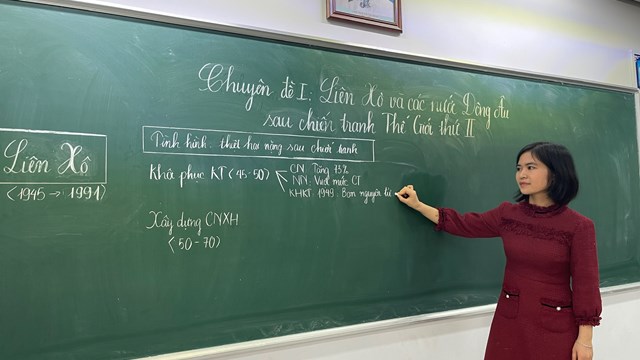 Chuyên đề I: Liên Xô và các nước Đông Âu
sau chiến tranh Thế Giới thứ II
Liên Xô
(1945 → 1991)
Tình hình thiệt hại nặng sau chiến tranh
Khôi phục KT (45-50)
CN Tăng 73%
NN: Vượt mức CT
KHKT: 1949. Bom nguyên tử
Xây dựng CNXH
(50-70)